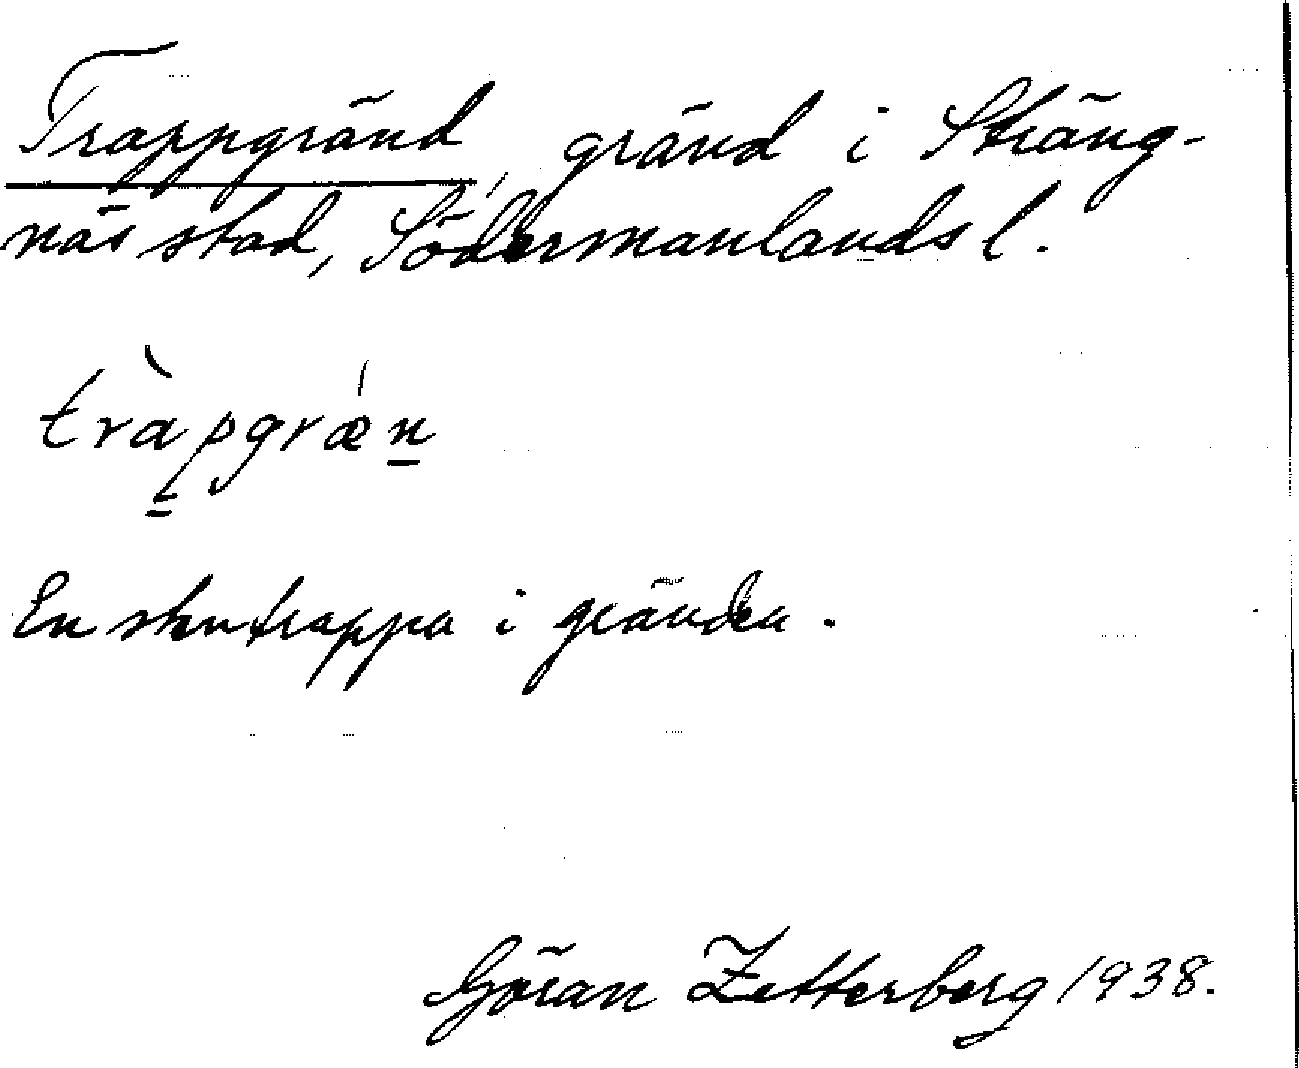 Trappgränd, gränd i Sträng-
näs stad, Södermanlands l.
tràpgræ´n
En stentrappa i gränden.
Göran Zetterberg 1938.